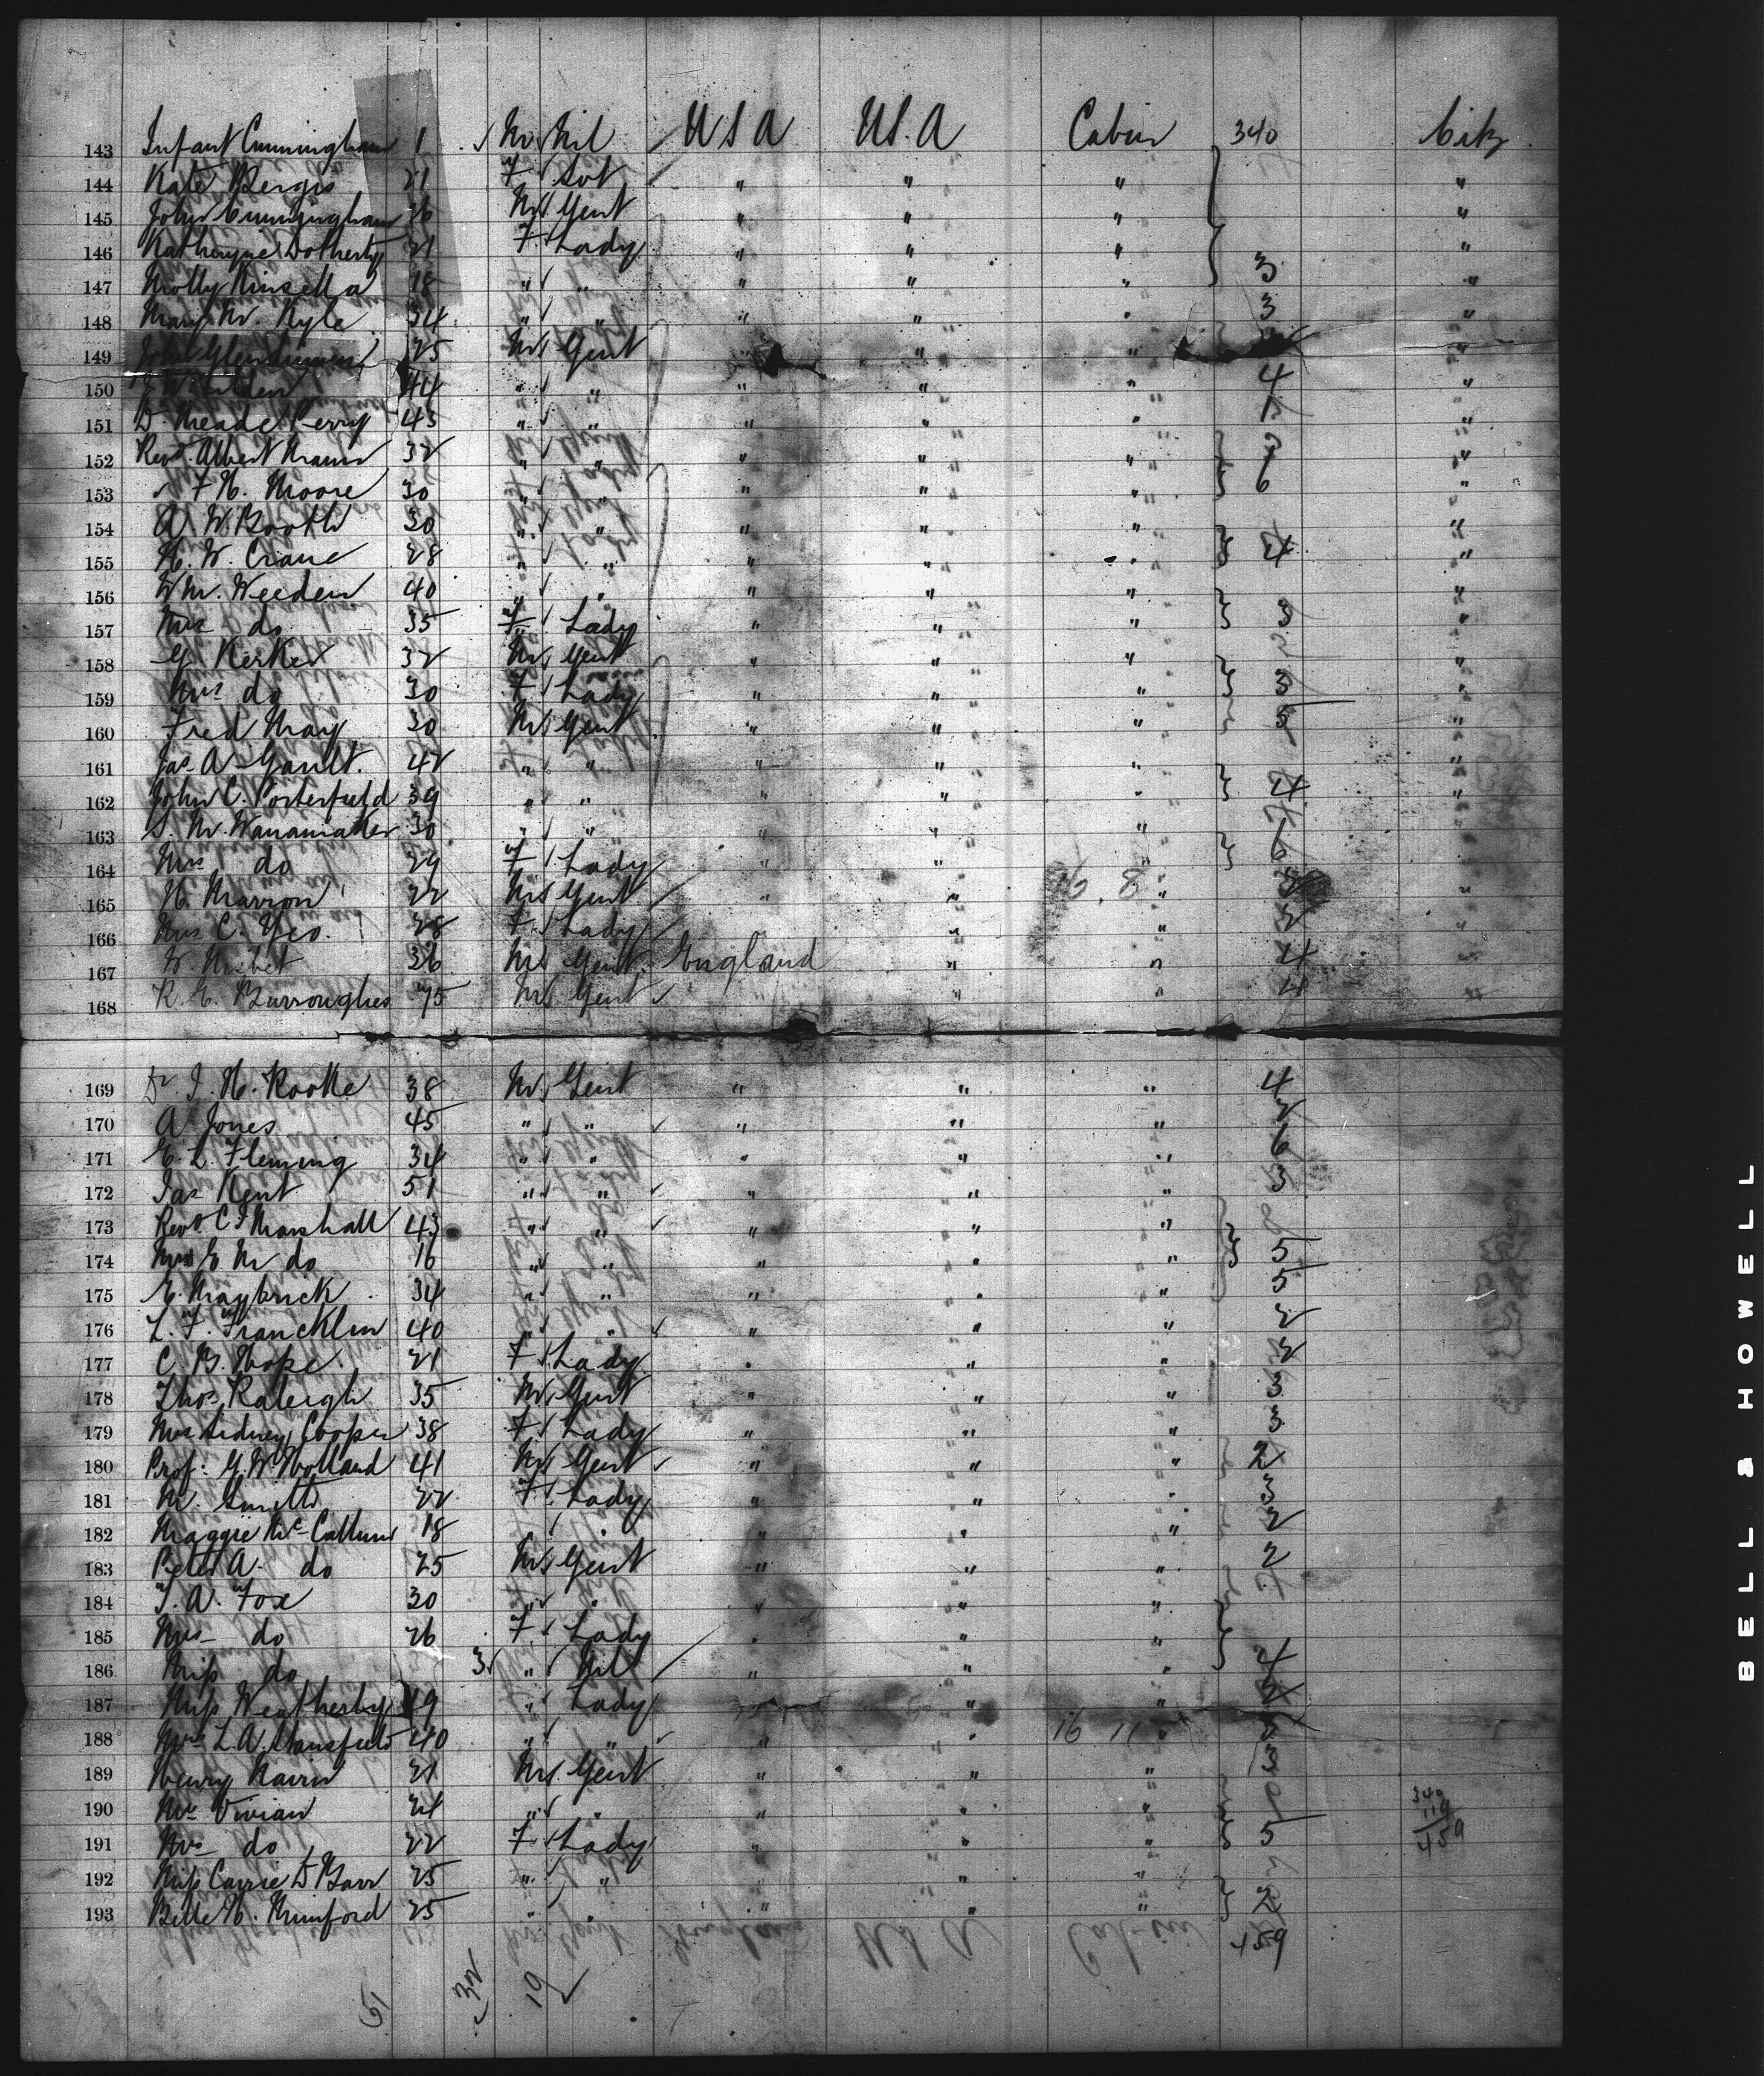 143 Infant Cunningham 1 M Nil U S A U S. A Cabin 340 Citz
144 Kate 21 F " " " "
145 John Cunningham 26 M Gent " " " "
146 Katheryne Dotherty 21 F Lady " " " "
147 Molly Kinsella 18 " " " " " 3 "
148 Mary M. Kyle 34 " " " " " 3 "
149 John 25 M Gent " " " "
150 44 " " " " " 4 "
151 D. Meade Perry 43 " " " " " 1 "
152 Revd. Albert 32 " " " " " "
153 " F H. Moore 30 " " " " " 6 "
154 A. W. Booth 30 " " " " " "
155 H. W. Crane 28 " " " " " 4 "
156 Wm. Weeden 40 " " " " " "
157 Mrs do 35 F Lady " " " 3 "
158 G. Kerker 32 M Gent " " " "
159 Mrs do 30 F Lady " " " 3 "
160 Fred May 30 M Gent " " " 5 "
161 Jas. A. Gault. 42 " " " " " "
162 John C. Porterfield 39 " " " " " 4 "
163 S. M. Wanamaker 30 " " " " "
164 Mrs do 29 F Lady " " " 6
165 H. Marron 22 M Gent " " 16. 8 " "
166 Mrs C. Yeo. 28 F Lady " " " 2 "
167 W. Nisbet 36 M Gent England " " 4
168 R. G. Burroughes 75 M Gent " " " 4 "
169 Dr. J. H. Rooke 38 M Gent " " " 4
170 A Jones 45 " " " " " 2
171 E. L. Fleming 34 " " " " " 6
172 Jas Kent 51 " " " " " 3
173 Revd C F Marshall 43 " " " " "
174 E M do 16 " " " " " 5
175 E. Maybrick 34 " " " " " 5
176 L. F. Francklin 40 " " " " " 2
177 C. B. Hope. 21 F Lady " " " 2
178 Thos. Raleigh 35 M Gent " " " 3
179 Mrs Sidney Cooper 38 F Lady " " " 3
180 Prof: G. W. Holland 41 M Gent " " " 2
181 M. Smith 22 F Lady " " " 3
182 Maggie McCallum 18 " " " 2
183 Peter A. do 25 M Gent " " " 2
184 T. A. Fox 30 " " " " "
185 Mrs do 26 F Lady " " "
186 Miss do 3 " Nil " " " 4
187 Miss Weatherby 19 " Lady " "
188 Mrs L. A. Mansfield 40 " " " " 16 11 " 2
189 Henry Nairn 21 M Gent " " " 3
190 Mr Vivian 24 " " " " " 340
191 Mrs do 22 F Lady " " " 5 459
192 Miss Carrie D Barr 25 " " " "
193 Belle H. Mumford 25 " " " " " 2
459
32 19
BELL & HOWELL